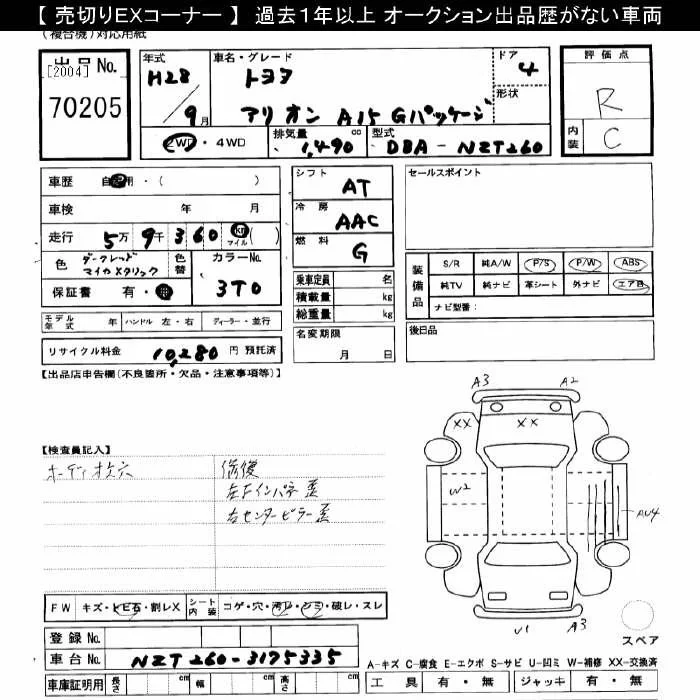 【 売切りEXコーナー 】 過去1年以上 オークション出品歴がない車両
(複合機)対応用紙
出品No.
[2004]
70205
年式 H28/9月
車名・グレード トヨタ
アリオン A15 Gパッケージ
ドア 4
形状
2WD・4WD
排気量 1,490 cc
型式 DBA-NZT260
評価点
R
内装 C
車歴 自家用・( )
車検 年 月
走行 5万 9千 360 km マイル( )
色 ダークレッド
マイカメタリック
色替
カラーNo.
3T0
保証書 有・無
モデル年式 年 ハンドル 左・右 ディーラー・並行
リサイクル料金 10,280 円 預託済
シフト AT
冷房 AAC
燃料 G
乗車定員 名
積載量 kg
総重量 kg
名変期限
月 日
セールスポイント
装備品
S/R 純A/W P/S P/W ABS
純TV 純ナビ 革シート 外ナビ エアB
ナビ型番:
後日品
【出品店申告欄(不良箇所・欠品・注意事項等)】
【検査員記入】
修復
右センターピラー歪
A3 A2
XX XX
W2
AU4
U1 A3
スペア
FW キズ・トビ石・割レX
シート内装 コゲ・穴・汚レ・シミ・破レ・スレ
登録No.
車台No. NZT260-3175335
車庫証明用 長さ cm 幅 cm 高さ cm
A-キズ C-腐食 E-エクボ S-サビ U-凹ミ W-補修 XX-交換済
工具 有・無 ジャッキ 有・無